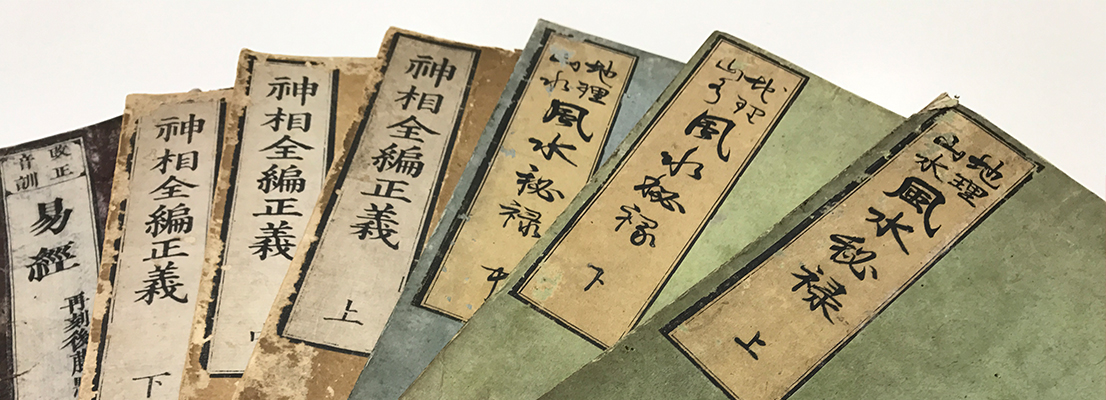 改正
音訓
易經
再刻後藤點
神相全編正義
下
神相全編正義
神相全編正義
上
地理
山水
風水秘禄
中
地理
山水
風水秘禄
下
地理
山水
風水秘禄
上